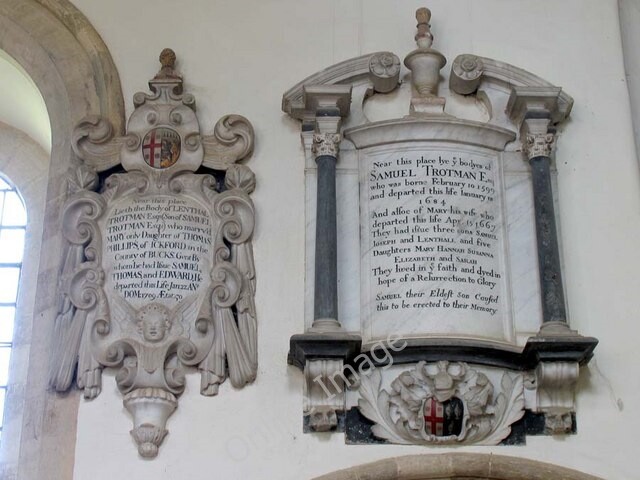 Near this place
Lieth the Body of LENTHALL
TROTMAN Esq (Son of SAMUEL
TROTMAN Esq) who marry'd
MARY only Daughter of THOMAS
PHILLIPS of ICKFORD in the
County of BUCKS Gent By
whom he had Issue SAMUEL
THOMAS, and EDWARD, He
departed this Life Jan 22 Anº
DOM 1709 Ætat 70
Near this place lye yͤ bodyes of
SAMUEL TROTMAN Esq
who was borne February 10 1599
and departed this life January
1684
And alsoe of MARY his wife who
departed this life Apr 15 1667
They had issue three sons SAMUEL
IOSEPH and LENTHALL and five
Daughters MARY HANNAH SUSANNA
ELIZABETH and SARAH
They lived in yͤ faith and dyed in
hope of a Resurrection to Glory
SAMUEL their Eldest Son Caused
this to be erected to their Memory
Image